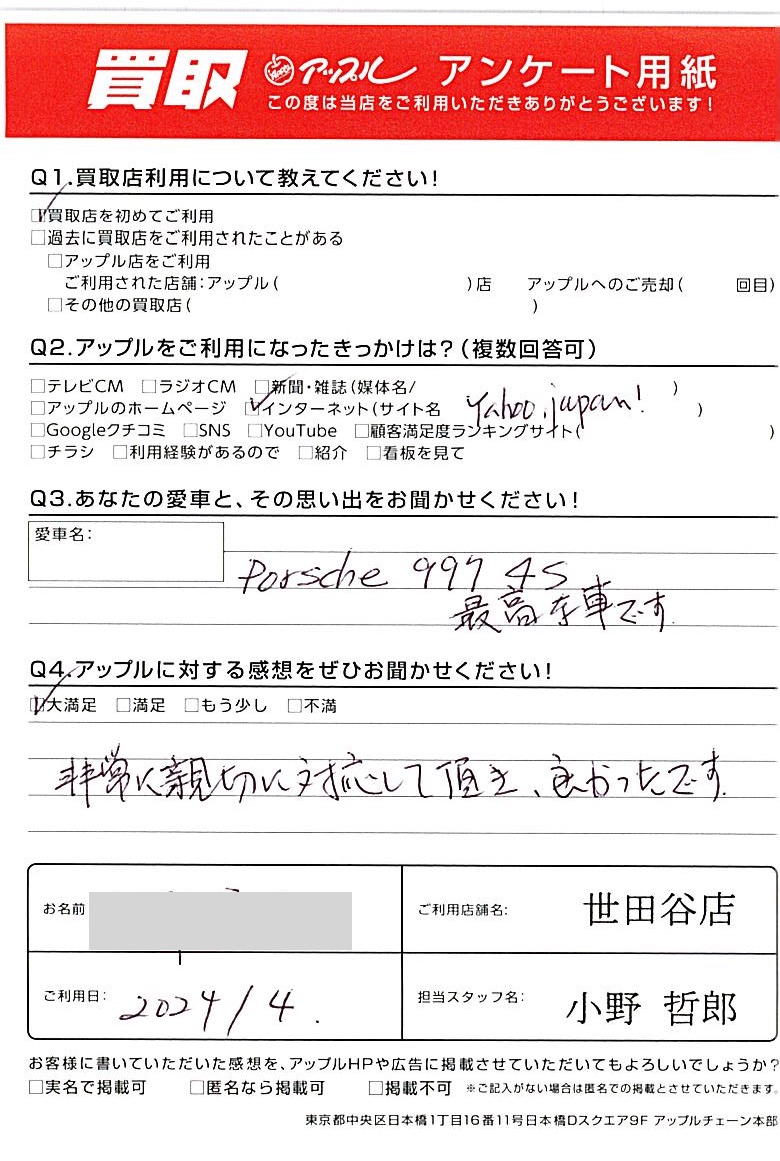 買取 アップル アンケート用紙
この度は当店をご利用いただきありがとうございます!
Q1.買取店利用について教えてください!
☑買取店を初めてご利用
□過去に買取店をご利用されたことがある
□アップル店をご利用
ご利用された店舗:アップル( )店 アップルへのご売却( 回目)
□その他の買取店( )
Q2.アップルをご利用になったきっかけは?(複数回答可)
□テレビCM □ラジオCM □新聞・雑誌(媒体名/ )
□アップルのホームページ ☑インターネット(サイト名 Yahoo.japan! )
□Googleクチコミ □SNS □YouTube □顧客満足度ランキングサイト( )
□チラシ □利用経験があるので □紹介 □看板を見て
Q3.あなたの愛車と、その思い出をお聞かせください!
愛車名:
Porsche 997 4S
最高な車です
Q4.アップルに対する感想をぜひお聞かせください!
☑大満足 □満足 □もう少し □不満
非常に親切に対応して頂き、良かったです
お名前
ご利用店舗名: 世田谷店
ご利用日: 2024/4.
担当スタッフ名: 小野 哲郎
お客様に書いていただいた感想を、アップルHPや広告に掲載させていただいてもよろしいでしょうか?
□実名で掲載可 □匿名なら掲載可 □掲載不可 ※ご記入がない場合は匿名での掲載とさせていただきます。
東京都中央区日本橋1丁目16番11号日本橋Dスクエア9F アップルチェーン本部